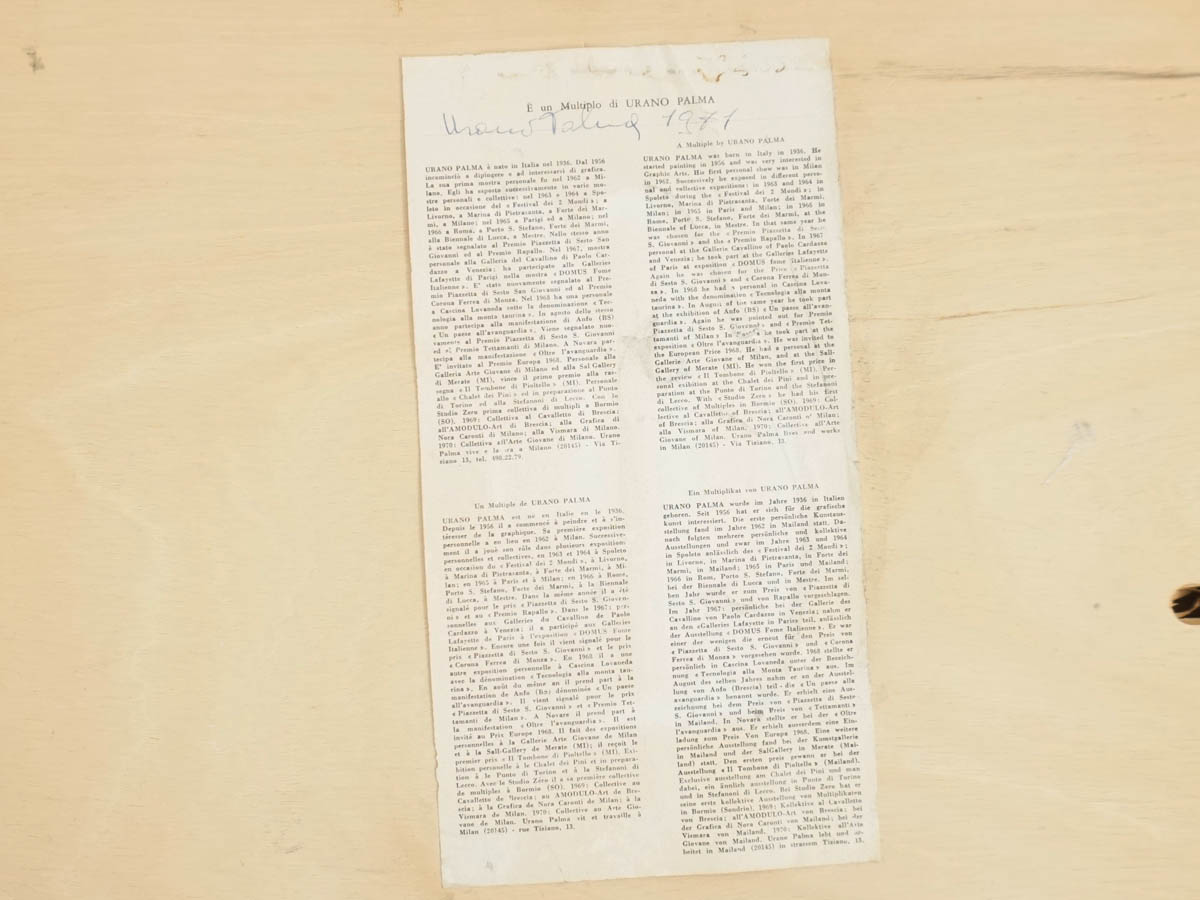 È un Multiplo di URANO PALMA
Urano Palma 1971
URANO PALMA è nato in Italia nel 1936. Dal 1956
incominciò a dipingere e ad interessarsi di grafica.
La sua prima mostra personale fu nel 1962 a Mi-
lano. Egli ha esposto successivamente in varie mo-
stre personali e collettive: nel 1963 e 1964 a Spo-
leto in occasione del « Festival dei 2 Mondi »; a
Livorno, a Marina di Pietrasanta, a Forte dei Mar-
mi, a Milano; nel 1965 a Parigi ed a Milano; nel
1966 a Roma, a Porto S. Stefano, Forte dei Marmi,
alla Biennale di Lucca, a Mestre. Nello stesso anno
è stato segnalato al Premio Piazzetta di Sesto San
Giovanni ed al Premio Rapallo. Nel 1967, mostra
personale alla Galleria del Cavallino di Paolo Car-
dazzo a Venezia; ha partecipato alle Galleries
Lafayette di Parigi nella mostra « DOMUS Fome
Italienne ». E' stato nuovamente segnalato al Pre-
mio Piazzetta di Sesto San Giovanni ed al Premio
Corona Ferrea di Monza. Nel 1968 ha una personale
a Cascina Lovaneda sotto la denominazione « Tec-
nologia alla monta taurina ». In agosto dello stesso
anno partecipa alla manifestazione di Anfo (BS)
« Un paese all'avanguardia ». Viene segnalato nuo-
vamente al Premio Piazzetta di Sesto S. Giovanni
ed al Premio Tettamanti di Milano. A Novara par-
tecipa alla manifestazione « Oltre l'avanguardia ».
E' invitato al Premio Europa 1968. Personale alla
Galleria Arte Giovane di Milano ed alla Sal Gallery
di Merate (MI), vince il primo premio alla ras-
segna « Il Tombone di Pioltello » (MI). Personale
allo « Chalet dei Pini » ed in preparazione al Punto
di Torino ed alla Stefanoni di Lecco. Con lo
Studio Zero prima collettiva di multipli a Bormio
(SO). 1969: Collettiva al Cavalletto di Brescia;
all'AMODULO-Art di Brescia; alla Grafica di
Nora Caronti di Milano; alla Vismara di Milano.
1970: Collettiva all'Arte Giovane di Milano. Urano
Palma vive e lavora a Milano (20145) - Via Ti-
ziano 13, tel. 498.22.79.
A Multiple by URANO PALMA
URANO PALMA was born in Italy in 1936. He
started painting in 1956 and was very interested in
Graphic Arts. His first personal show was in Milan
in 1962. Successively he exposed in different perso-
nal and collective expositions: in 1963 and 1964 in
Spoleto during the « Festival dei 2 Mondi »; in
Livorno, Marina di Pietrasanta, Forte dei Marmi,
Milan; in 1965 in Paris and Milan; in 1966 in
Rome, Porto S. Stefano, Forte dei Marmi, at the
Biennale of Lucca, in Mestre. In that same year he
was chosen for the « Premio Piazzetta di Sesto
S. Giovanni » and the « Premio Rapallo ». In 1967
personal at the Galleria Cavallino of Paolo Cardazzo
and Venezia; he took part at the Galleries Lafayette
of Paris at exposition « DOMUS fome Italienne ».
Again he was chosen for the Price « Piazzetta
di Sesto S. Giovanni » and « Corona Ferrea di Mon-
za ». In 1968 he had a personal in Cascina Lova-
neda with the denomination « Tecnologia alla monta
taurina ». In August of the same year he took part
at the exhibition of Anfo (BS) « Un paese all'avan-
guardia ». Again he was pointed out for Premio
Piazzetta di Sesto S. Giovanni and « Premio Tet-
tamanti of Milan » In Novara he took part at the
exposition « Oltre l'avanguardia ». He was invited to
the European Price 1968. He had a personal at the
Gallerie Arte Giovane of Milan, and at the Sall-
Gallery of Merate (MI). He won the first price in
the review « Il Tombone di Pioltello » (MI). Per-
sonal exibition at the Chalet dei Pini and in pre-
paration at the Punto di Torino and the Stefanoni
di Lecco. With « Studio Zero » he had his first
collective of Multiples in Bormio (SO). 1969: Col-
lective al Cavalletto of Brescia; all'AMODULO-Art
of Brescia; alla Grafica di Nora Caronti of Milan;
alla Vismara of Milan. 1970: Collectiva all'Arte
Giovane of Milan. Urano Palma lives and works
in Milan (20145) - Via Tiziano, 13.
Un Multiple de URANO PALMA
URANO PALMA est né en Italie en le 1936.
Depuis le 1956 il a commencé à peindre et à s'in-
téresser de la graphique. Sa première exposition
personnelle a en lieu en 1962 à Milan. Successive-
ment il a joué son rôle dans plusieurs expositions
personnelles et collectives, en 1963 et 1964 à Spoleto
en occation du « Festival dei 2 Mondi », à Livorno,
à Marina di Pietrasanta, à Forte dei Marmi, à Mi-
lan; en 1965 à Paris et à Milan; en 1966 à Rome,
Porto S. Stefano, Forte dei Marmi, à la Biennale
di Lucca, à Mestre. Dans la même année il a été
signalé pour le prix « Piazzetta di Sesto S. Gioven-
ni » et au « Premio Rapallo ». Dans le 1967: per-
sonnelles aux Galleries du Cavallino de Paolo
Cardazzo à Venezia; il a participé aux Galleries
Lafayette de Paris à l'exposition « DOMUS Fome
Italienne ». Encore une fois il vient signalé pour le
prix « Piazzetta di Sesto S. Giovanni » et le prix
« Corona Ferrea di Monza ». En 1968 il a une
autre exposition personnelle à Cascina Lovaneda
avec la dénomination « Tecnologia alla monta tau-
rina ». En août du même an il prend part à la
manifestation de Anfo (BS) dénominée « Un paese
all'avanguardia ». Il vient signalé pour le prix
« Piazzetta di Sesto S. Giovanni » et « Premio Tet-
tamanti de Milan ». A Novare il prend part à
la manifestation « Oltre l'avanguardia ». Il est
invité au Prix Europe 1968. Il fait des expositions
personnelles à la Gallerie Arte Giovane de Milan
et à la Sall-Gallery de Merate (MI); il reçoit le
premier prix « Il Tombone di Pioltello » (MI). Exi-
bition personelle à le Chalet dei Pini et in prepara-
tion à le Punto di Torino et à la Stefanoni di
Lecco. Avec le Studio Zéro il a sa première collective
de multiples à Bormio (SO). 1969: Collective au
Cavalletto de Brescia; au AMODULO-Art de Bre-
scia; à la Grafica de Nora Caronti de Milan; à la
Vismara de Milan. 1970: Collective au Arte Gio-
vane de Milan. Urano Palma vit et travaille à
Milan (20145) - rue Tiziano, 13.
Ein Multiplikat von URANO PALMA
URANO PALMA wurde im Jahre 1936 in Italien
geboren. Seit 1956 hat er sich für die grafische
kunst interessiert. Die erste persönliche Kunstaus-
stellung fand im Jahre 1962 in Mailand statt. Da-
nach folgten mehrere persönliche und kollektive
Ausstellungen und zwar im Jahre 1963 und 1964
in Spoleto anlässlich des « Festival dei 2 Mondi »;
in Livorno, in Marina di Pietrasanta, in Forte dei
Marmi, in Mailand; 1965 in Paris und Mailand;
1966 in Rom, Porto S. Stefano, Forte dei Marmi,
bei der Biennale di Lucca und in Mestre. Im sel-
ben Jahr wurde er zum Preis von « Piazzetta di
Sesto S. Giovanni » und von Rapallo vorgeschlagen.
Im Jahr 1967: persönliche bei der Gallerie des
Cavallino von Paolo Cardazzo in Venezia; nahm er
an den « Galleries Lafayette in Paris » teil, anlässlich
der Ausstellung « DOMUS Fome Italienne ». Er war
einer der wenigen die erneut für den Preis von
« Piazzetta di Sesto S. Giovanni » und « Corona
Ferrea di Monza » vorgesehen wurde. 1968 stellte er
persönlich in Cascina Lovaneda unter der Bezeich-
nung « Tecnologia alla Monta Taurina » aus. Im
August des selben Jahres nahm er an der Ausstel-
lung von Anfo (Brescia) teil - die « Un paese alla
avanguardia » benannt wurde. Er erhielt eine Aus-
zeichnung bei dem Preis von « Piazzetta di Seste
S. Giovanni » und beim Preis von « Tettamanti »
in Mailand. In Novara stellte er bei der « Oltre
l'avanguardia » aus. Er erhielt ausserdem eine Ein-
ladung zum Preis Von Europa 1968. Eine weitere
persönliche Ausstellung fand bei der Kunstgallerie
in Mailand und der SalGallery in Merate (Mai-
land) statt. Den ersten preis gewann er bei der
Ausstellung « Il Tombone di Pioltello » (Mailand).
Exclusive ausstellung am Chalet dei Pini und man
dabei, ein ännlich ausstellung in Punto di Torino
und in Stefanoni di Lecco. Bei Studio Zero hat er
seine erste kollektive Ausstellung von Multiplikaten
in Bormio (Sondrio). 1969: Kollektive al Cavalletto
von Brescia; all'AMODULO-Art von Brescia; bei
der Grafica di Nora Caronti von Mailand; bei der
Vismara von Mailand. 1970: Kollektive all'Arte
Giovane von Mailand. Urano Palma lebt und ar-
beitet in Mailand (20145) in strassem Tiziano, 13.